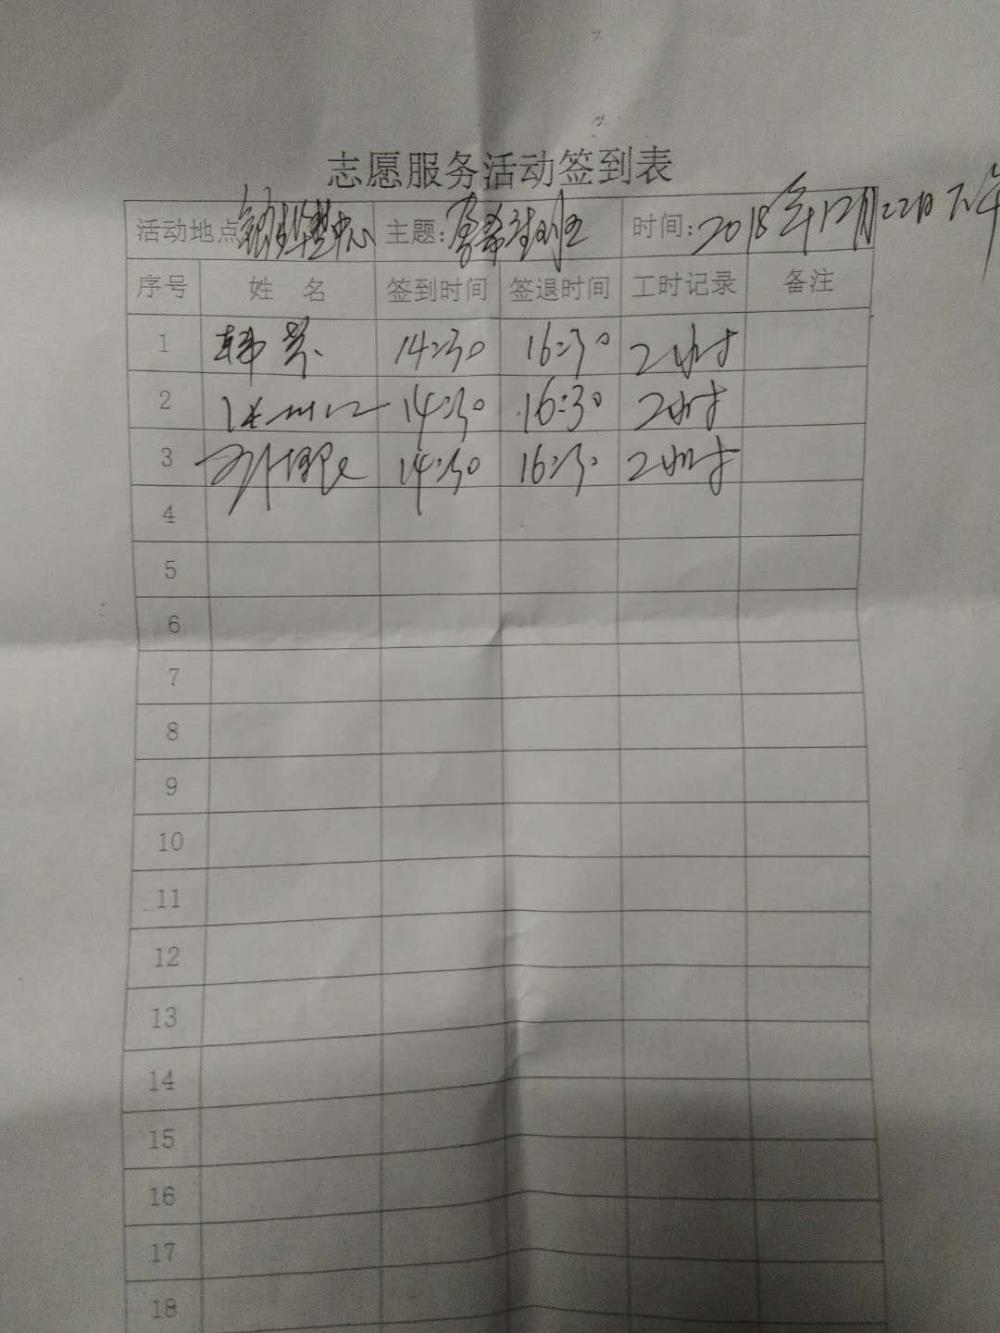 志愿服务活动签到表
活动地点 中心 主题: 班 时间: 2018年12月22日下午
序号 姓 名 签到时间 签退时间 工时记录 备注
1 韩 14:30 16:30 2小时
2 14:30 16:30 2小时
3 14:30 16:30 2小时
4
5
6
7
8
9
10
11
12
13
14
15
16
17
18